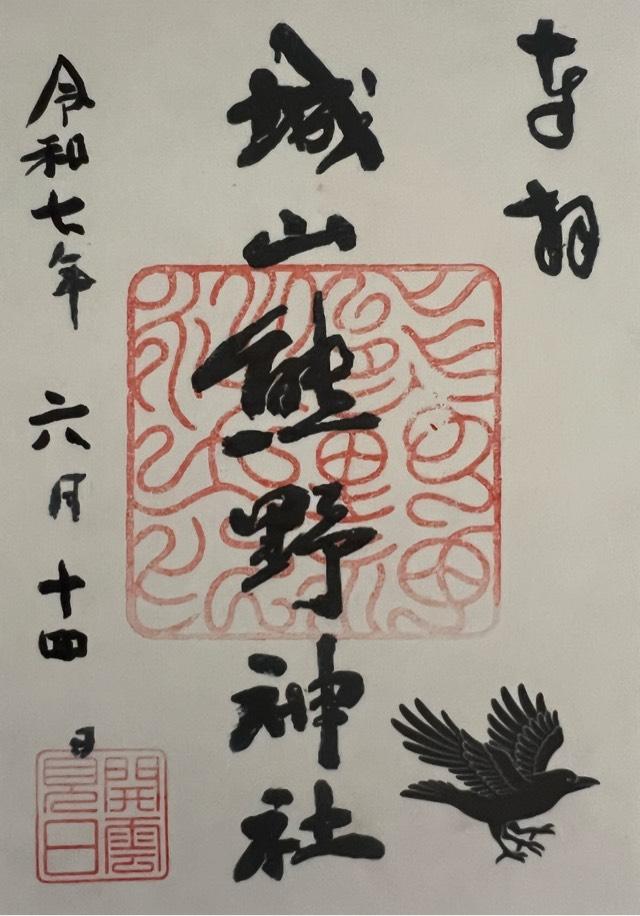 奉拝
城山熊野神社
令和七年 六月 十四 日
開雲見日